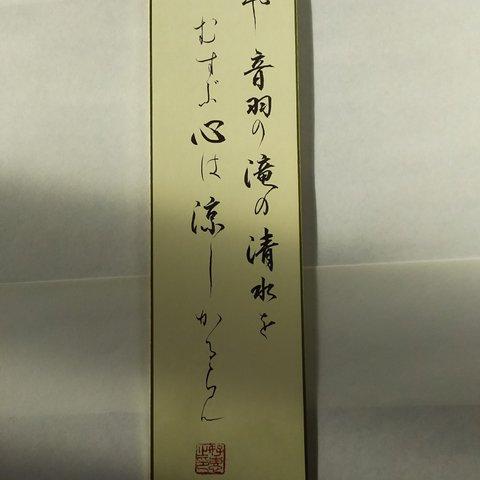 や音羽の滝の清水を
むすぶ心は涼しかるらん